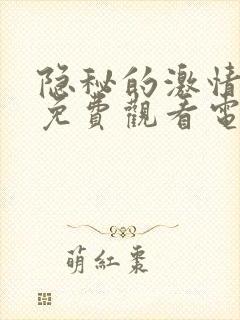 隐秘的激情
免費觀看電
萌紅棗